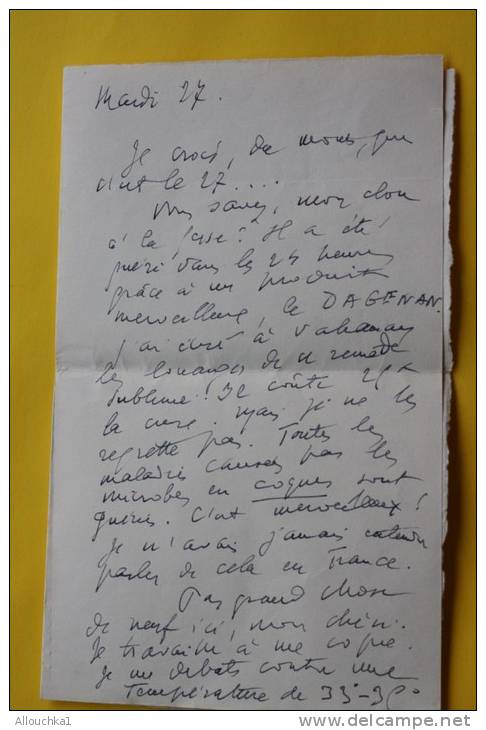 Mardi 27.
Je crois, du moins, que
c'est le 27....
Vous savez, mon clou
à la fesse? Il a été
guéri dans les 24 heures
grâce à un produit
merveilleux, le DAGENAN.
J'ai écrit à
les louanges de ce remède
sublime! Il coûte 25
la cure. Mais je ne les
regrette pas. Toutes les
maladies causées par les
microbes en coques sont
guéries. C'est merveilleux!
Je n'avais jamais entendu
parler de cela en France.
Pas grand chose
de neuf ici, mon chéri.
Je travaille à me copie.
Je me débats contre une
température de 35°-38°
Allouchka1
delcampe.net